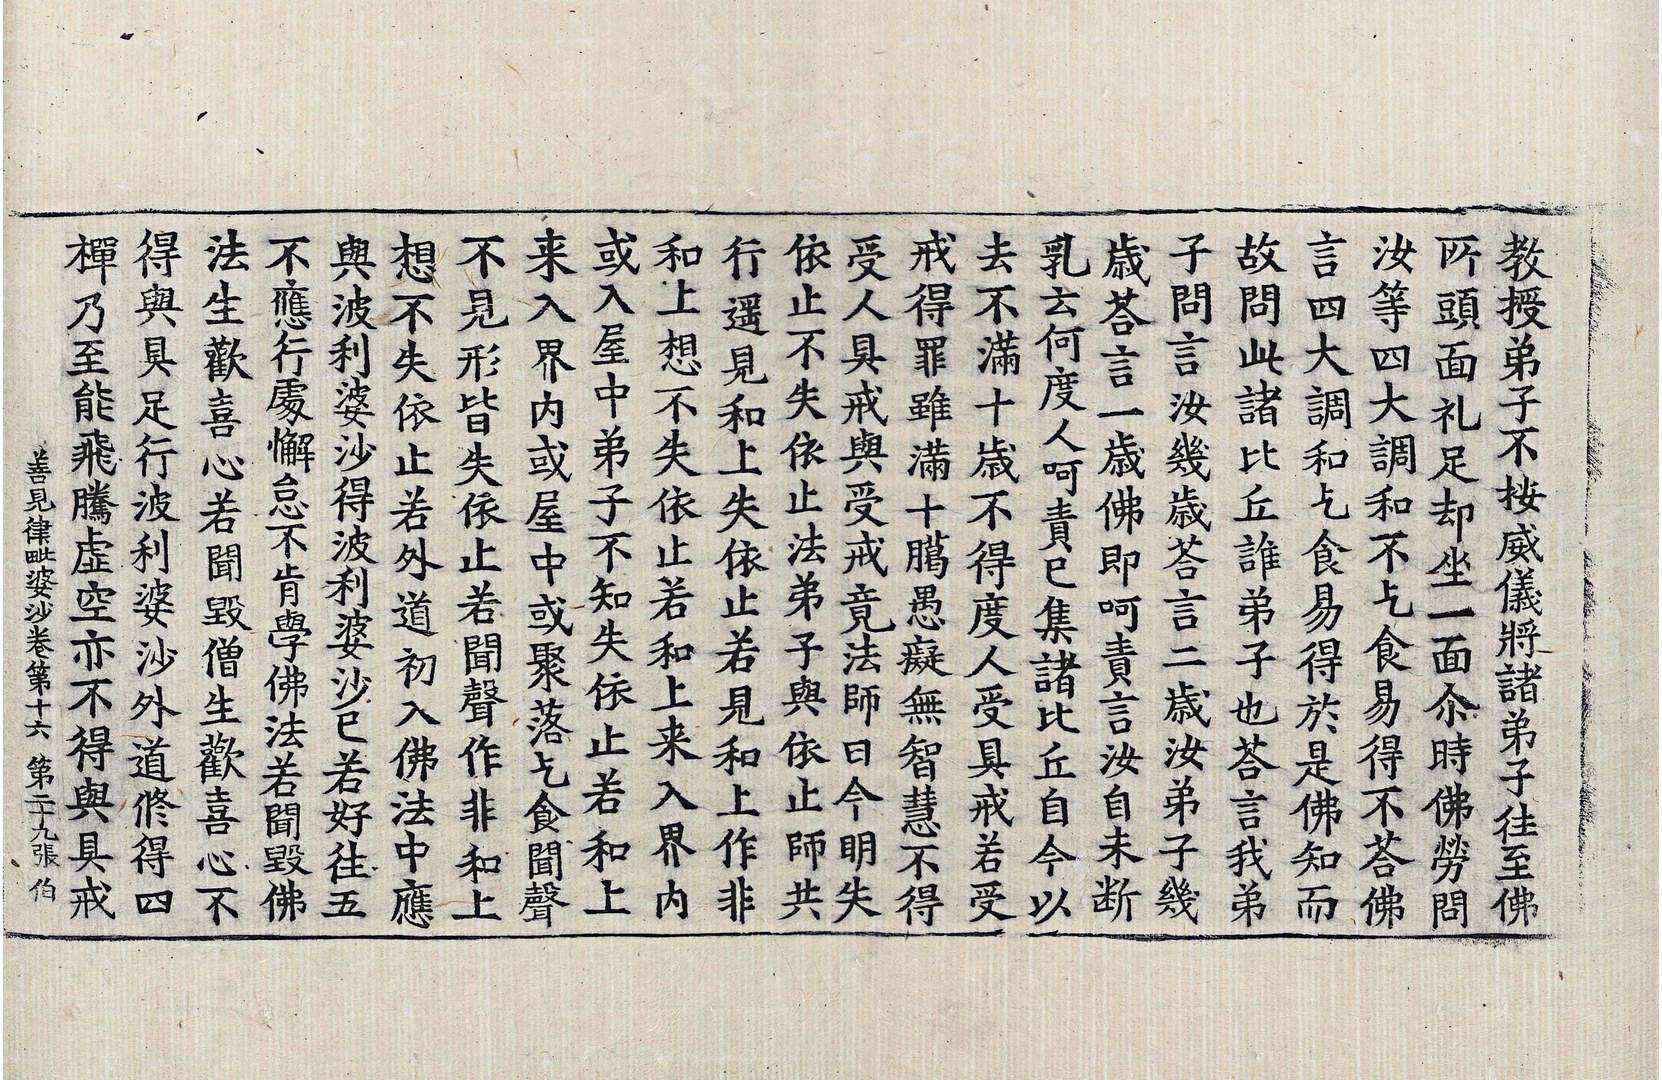 教授弟子不按威儀將諸弟子往至佛
所頭面礼足却坐一面尒時佛勞問
汝等四大調和不乞食易得不荅佛
言四大調和乞食易得於是佛知而
故問此諸比丘誰弟子也荅言我弟
子問言汝幾歳荅言二歳汝弟子幾
歳荅言一歳佛即呵責言汝自未断
乳云何度人呵責已集諸比丘自今以
去不滿十歳不得度人受具戒若受
戒得罪雖滿十臈愚癡無智慧不得
受人具戒與受戒竟法師曰今明失
依止不失依止法弟子與依止師共
行遥見和上失依止若見和上作非
和上想不失依止若和上来入界内
或入屋中弟子不知失依止若和上
来入界内或屋中或聚落乞食聞聲
不見形皆失依止若聞聲作非和上
想不失依止若外道初入佛法中應
與波利婆沙得波利婆沙已若好往五
不應行處懈怠不肯學佛法若聞毀佛
法生歡喜心若聞毀僧生歡喜心不
得與具足行波利婆沙外道脩得四
禪乃至能飛騰虛空亦不得與具戒
善見律毗婆沙卷第十六 第二十九張 伯